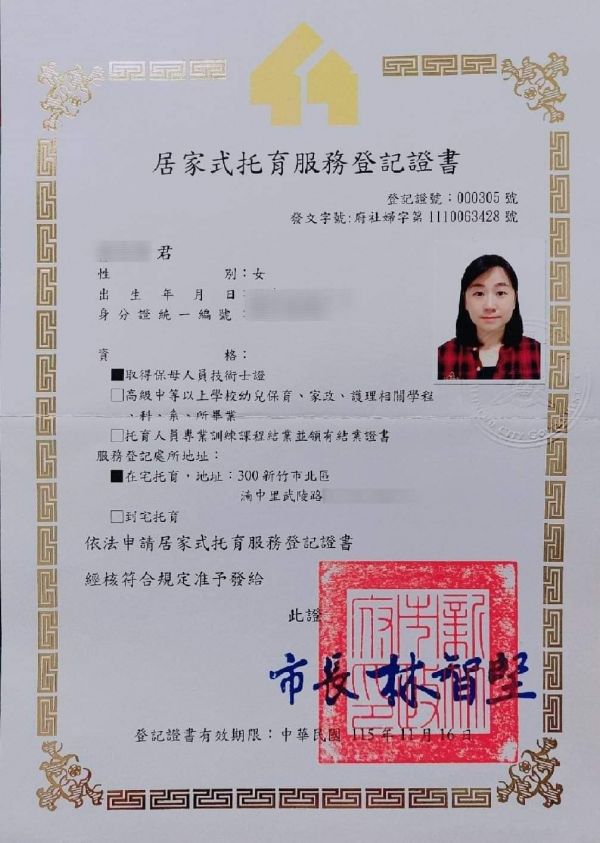 居家式托育服務登記證書
登記證號：000305 號
發文字號：府社婦字第 1110063428 號
君
性別：女
出生年月日：
身分證統一編號：
資格：
■取得保母人員技術士證
□高級中等以上學校幼兒保育、家政、護理相關學程
、科、系、所畢業
□托育人員專業訓練課程結業並領有結業證書
服務登記處所地址：
■在宅托育，地址：300 新竹市北區
湳中里武陵路
□到宅托育
依法申請居家式托育服務登記證書
經核符合規定准予發給
此證
新竹市政府印
市長 林智堅
登記證書有效期限：中華民國 115 年 11 月 16 日